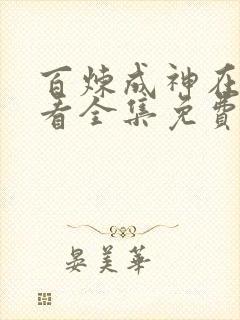 百炼成神在
看全集免费
晏美华